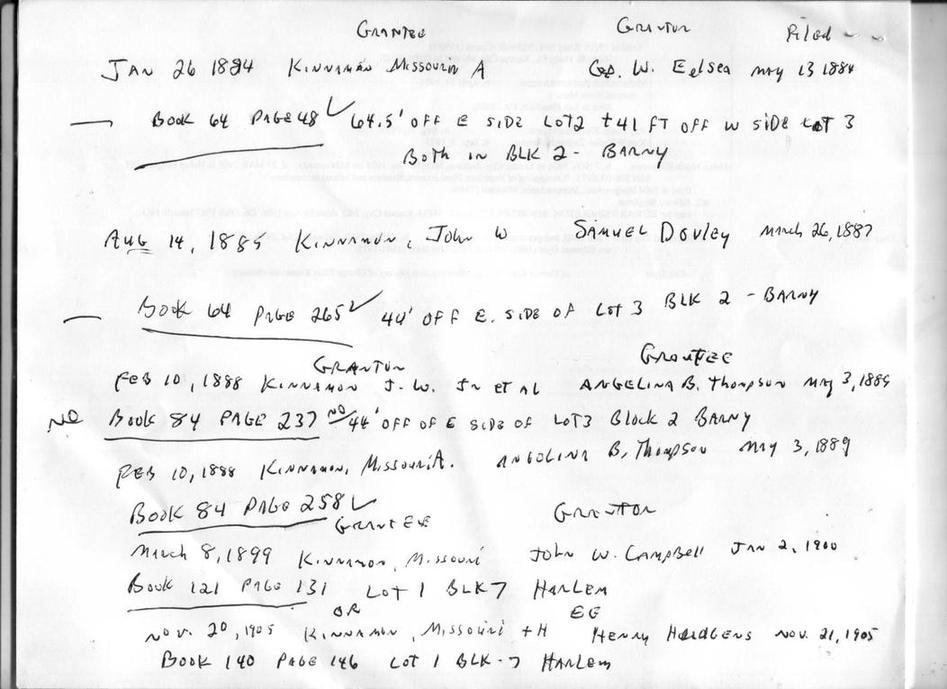 GRANTEE GRANTOR Filed - -
JAN 26 1884 KINNAMAN MISSOURI A W. Eelsea MAY 13 1884
— BOOK 64 PAGE 48 ✓ 64.5' OFF E SIDE LOT 2 + 41 FT OFF W SIDE LOT 3
BOTH IN BLK 2 - BARNY
AUG 14, 1885 KINNAMON, JOHN W SAMUEL DOVLEY MARCH 26, 1887
— BOOK 64 PAGE 265 ✓ 44' OFF E. SIDE OF LOT 3 BLK 2 - BARNY
GRANTOR GRANTEE
FEB 10, 1888 KINNAMON J. W. JR ET AL ANGELINA B. Thompson MAY 3, 1889
NO BOOK 84 PAGE 237 NO 44' OFF OF E SIDE OF LOT 3 Block 2 BARNY
FEB 10, 1888 KINNAMON, MISSOURI A. ANGELINA B. THOMPSON MAY 3, 1889
BOOK 84 PAGE 258 ✓
GRANTEE GRANTOR
MARCH 8, 1899 KINNAMON, MISSOURI JOHN W. CAMPBELL JAN 2, 1900
BOOK 121 PAGE 131 LOT 1 BLK 7 HARLEM
OR EE
NOV. 20, 1905 KINNAMON, MISSOURI + H HENRY HUDGENS NOV. 21, 1905
BOOK 140 PAGE 146 LOT 1 BLK - 7 HARLEM